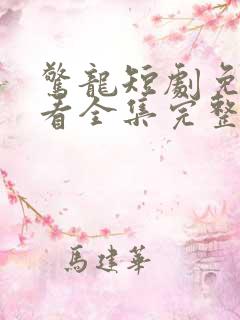 驚龍短劇免
看全集完整
馬建華